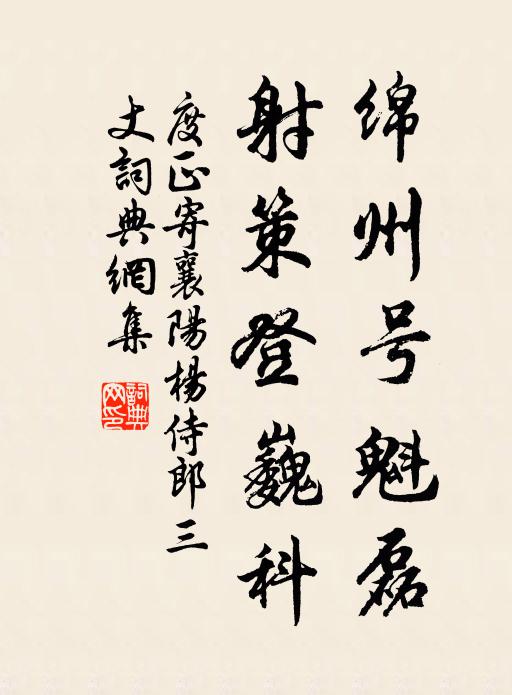 绵州号魁磊
射策登巍科
度正寄襄陽楊侍郎三
丈詞典網集
詞典網印